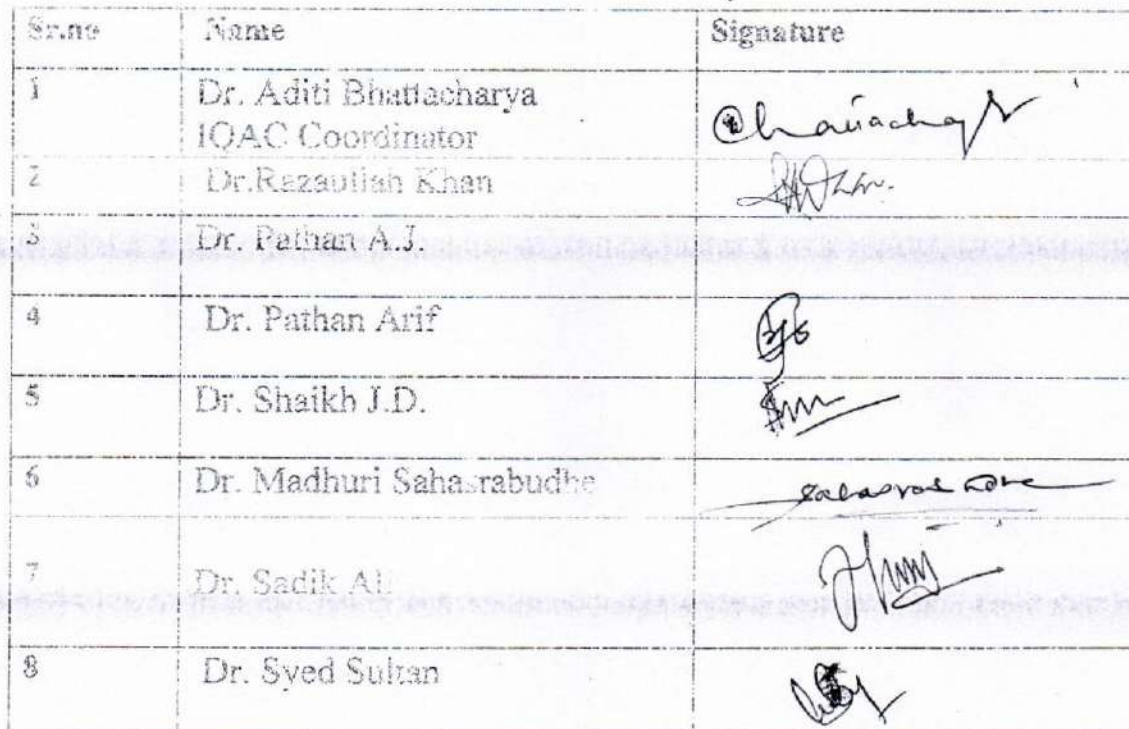 Sr.no Name Signature
1 Dr. Aditi Bhattacharya
IQAC Coordinator
2 Dr.Razaullah Khan
3 Dr. Pathan A.J.
4 Dr. Pathan Arif
5 Dr. Shaikh J.D.
6 Dr. Madhuri Sahasrabudhe
7 Dr. Sadik Ali
8 Dr. Syed Sultan